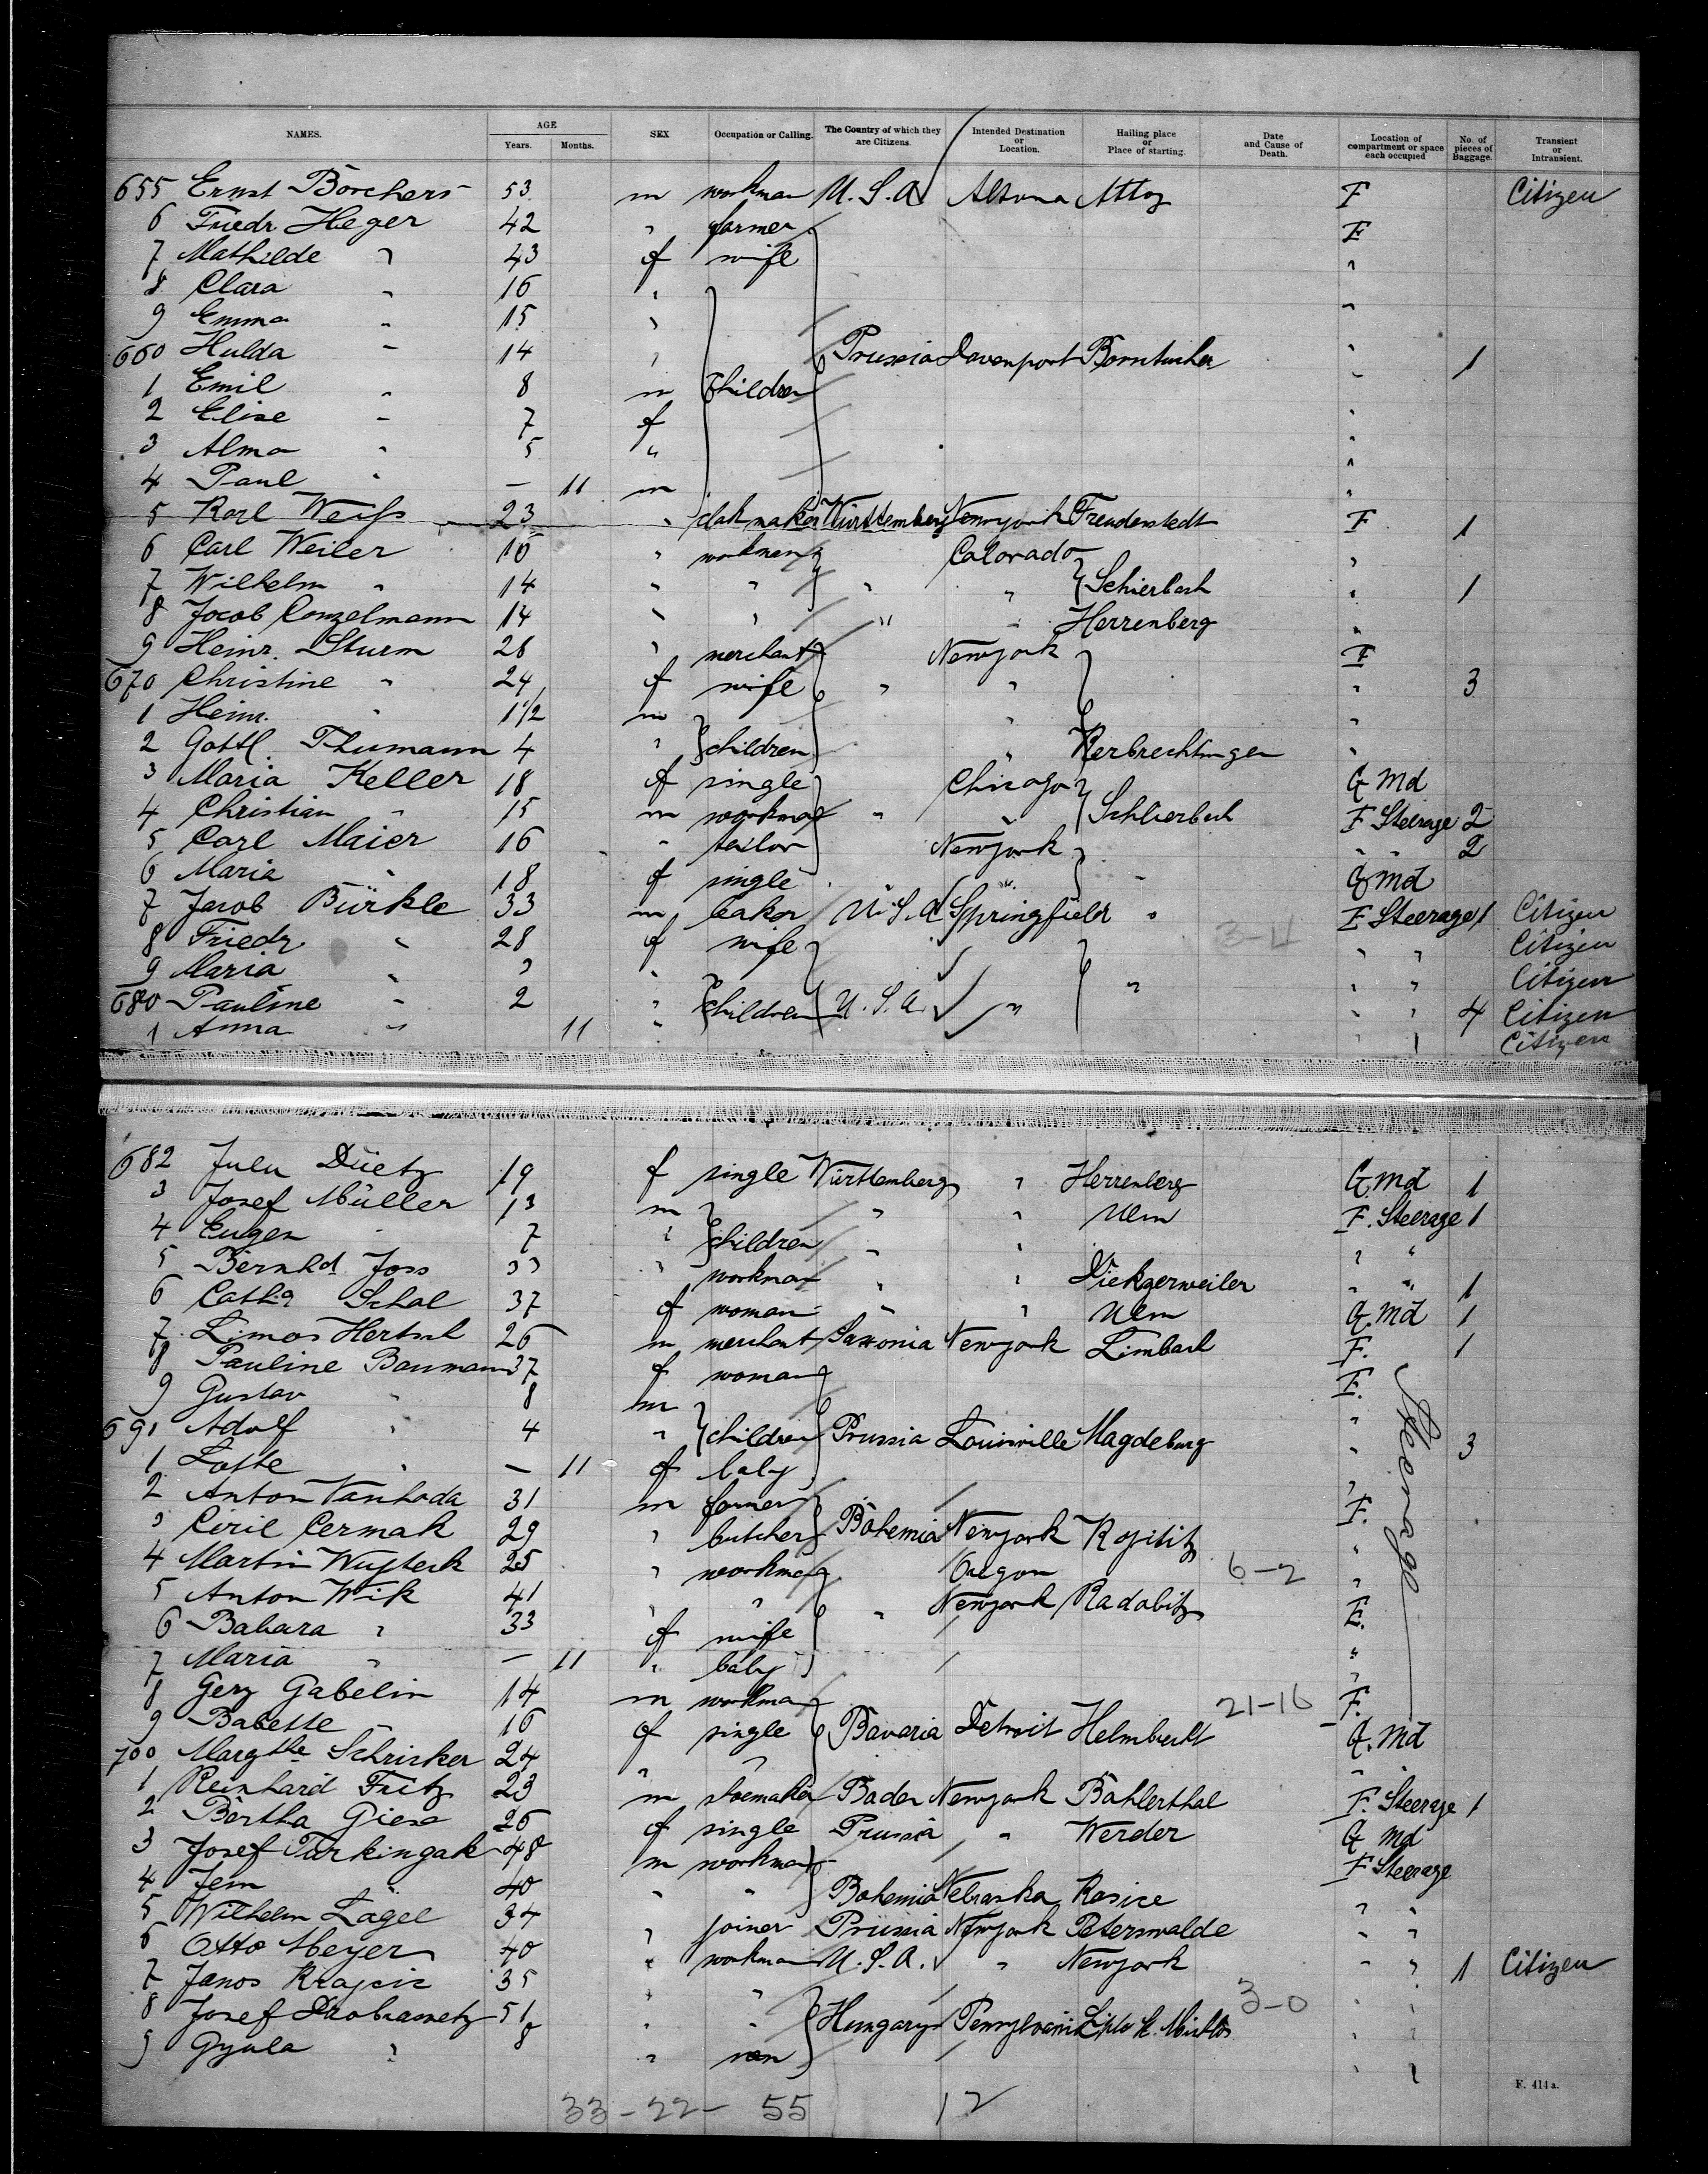 NAMES. AGE Years. Months. SEX Occupation or Calling. The Country of which they are Citizens. Intended Destination or Location. Hailing place or Place of starting. Date and Cause of Death. Location of compartment or space each occupied No. of pieces of Baggage. Transient or Intransient.
655 Ernst Borchers 53 m workman U.S.A. Altona F Citizen
6 Friedr. Heger 42 " farmer F
7 Mathilde " 43 f wife "
8 Clara " 16 " "
9 Emma " 15 "
660 Hulda " 14 " Prussia Davenport " 1
1 Emil " 8 m children
2 Elise " 7 f "
3 Alma " 5 " "
4 Paul " — 11 m "
5 Karl Weiss 23 " Württemberg Newyork Freudenstedt F 1
6 Carl Weiler 16 " workman Colorado "
7 Wilhelm " 14 " " " " Schierbach " 1
8 Jacob Conzelmann 14 " " " " Herrenberg "
9 Heinr. Sturm 28 " merchant Newyork F
670 Christine " 24 f wife " " " 3
1 Heinr. " 1½ m " "
2 Gottl. Thumann 4 " children " Herbrechtingen "
3 Maria Keller 18 f single Chicago G Md
4 Christian " 15 m workman " " Schlierbach F Steerage 2
5 Carl Maier 16 " tailor Newyork " " 2
6 Maria " 18 f single " " G Md
7 Jacob Bürkle 33 m baker U.S.A. Springfield " F Steerage 1 Citizen
8 Friedr. " 28 f wife 3-4 " " Citizen
9 Maria " 3 " " " " Citizen
680 Pauline " 2 " children U.S.A. " " " 4 Citizen
1 Anna " 11 " " " Citizen
682 19 f single Württemberg " Herrenberg G. Md 1
3 Josef Müller 13 m " " Ulm F. Steerage 1
4 Eugen " 7 " children " " " "
5 Bernhd. Joss 33 " workman " " " " 1
6 Schal 37 f woman " " Ulm G. Md 1
7 26 m merchant Saxonia Newyork Limbach F. 1
8 Pauline Baumann 37 f woman F. Steerage
9 Gustav " 8 m "
691 Adolf " 4 " children Prussia Louisville Magdeburg " 3
1 Lotte " — 11 f baby "
2 Anton Vanhoda 31 m farmer F.
3 Ciril Cermak 29 " butcher Bohemia Newyork "
4 Martin 25 " workman Oregon 6-2 "
5 Anton Wik 41 " " " Newyork Radabitz F.
6 Babara " 33 f wife "
7 Maria " — 11 " baby "
8 Gabelin 14 m workman 21-16 F.
9 Babette " 16 f single Bavaria Detroit G. Md
700 Margthe Schricker 24 " " " "
1 Reinhard Fritz 23 m shoemaker Baden Newyork Bühlerthal F. Steerage 1
2 Bertha Giese 26 f single Prussia " Werder G Md
3 Josef 48 m workman F Steerage
4 40 " " Bohemia Nebraska Rosice " "
5 Wilhelm Lägel 34 " joiner Prussia Newyork Peterswalde " "
6 Otto Meyer 40 " workman U.S.A. " Newyork " " 1 Citizen
7 Janos Krajcir 35 " " 3-0 " "
8 Josef 51 " " Hungary Pennsylvania " "
9 Gyula " 8 " son " "
33-22- 55 12
F. 414a.